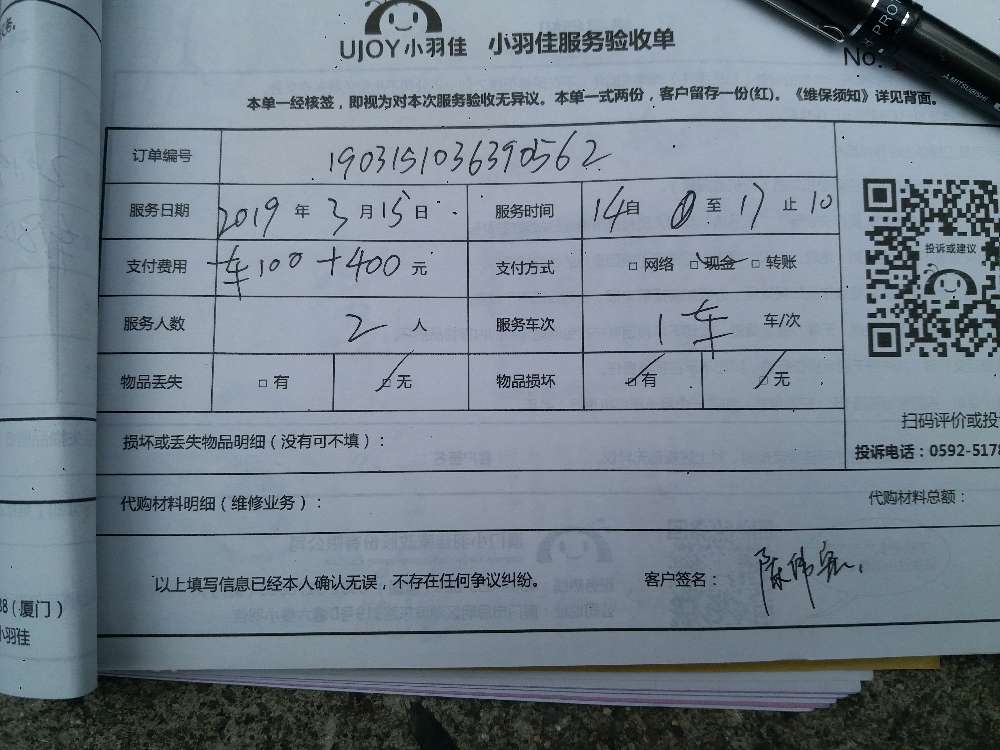 UJOY小羽佳 小羽佳服务验收单
No.
PRO
MITSUBISHI
本单一经核签，即视为对本次服务验收无异议。本单一式两份，客户留存一份(红)。《维保须知》详见背面。
订单编号 1903151036390562
服务日期 2019 年 3 月 15 日 服务时间 14 自 0 至 17 止 10
支付费用 车100+400 元 支付方式 □ 网络 □ 现金 □ 转账
投诉或建议
服务人数 2 人 服务车次 1车 车/次
物品丢失 □ 有 □ 无 物品损坏 □ 有 □ 无
扫码评价或投
损坏或丢失物品明细（没有可不填）：
投诉电话：0592-5178
代购材料明细（维修业务）： 代购材料总额：
以上填写信息已经本人确认无误，不存在任何争议纠纷。 客户签名：
88（厦门）
小羽佳